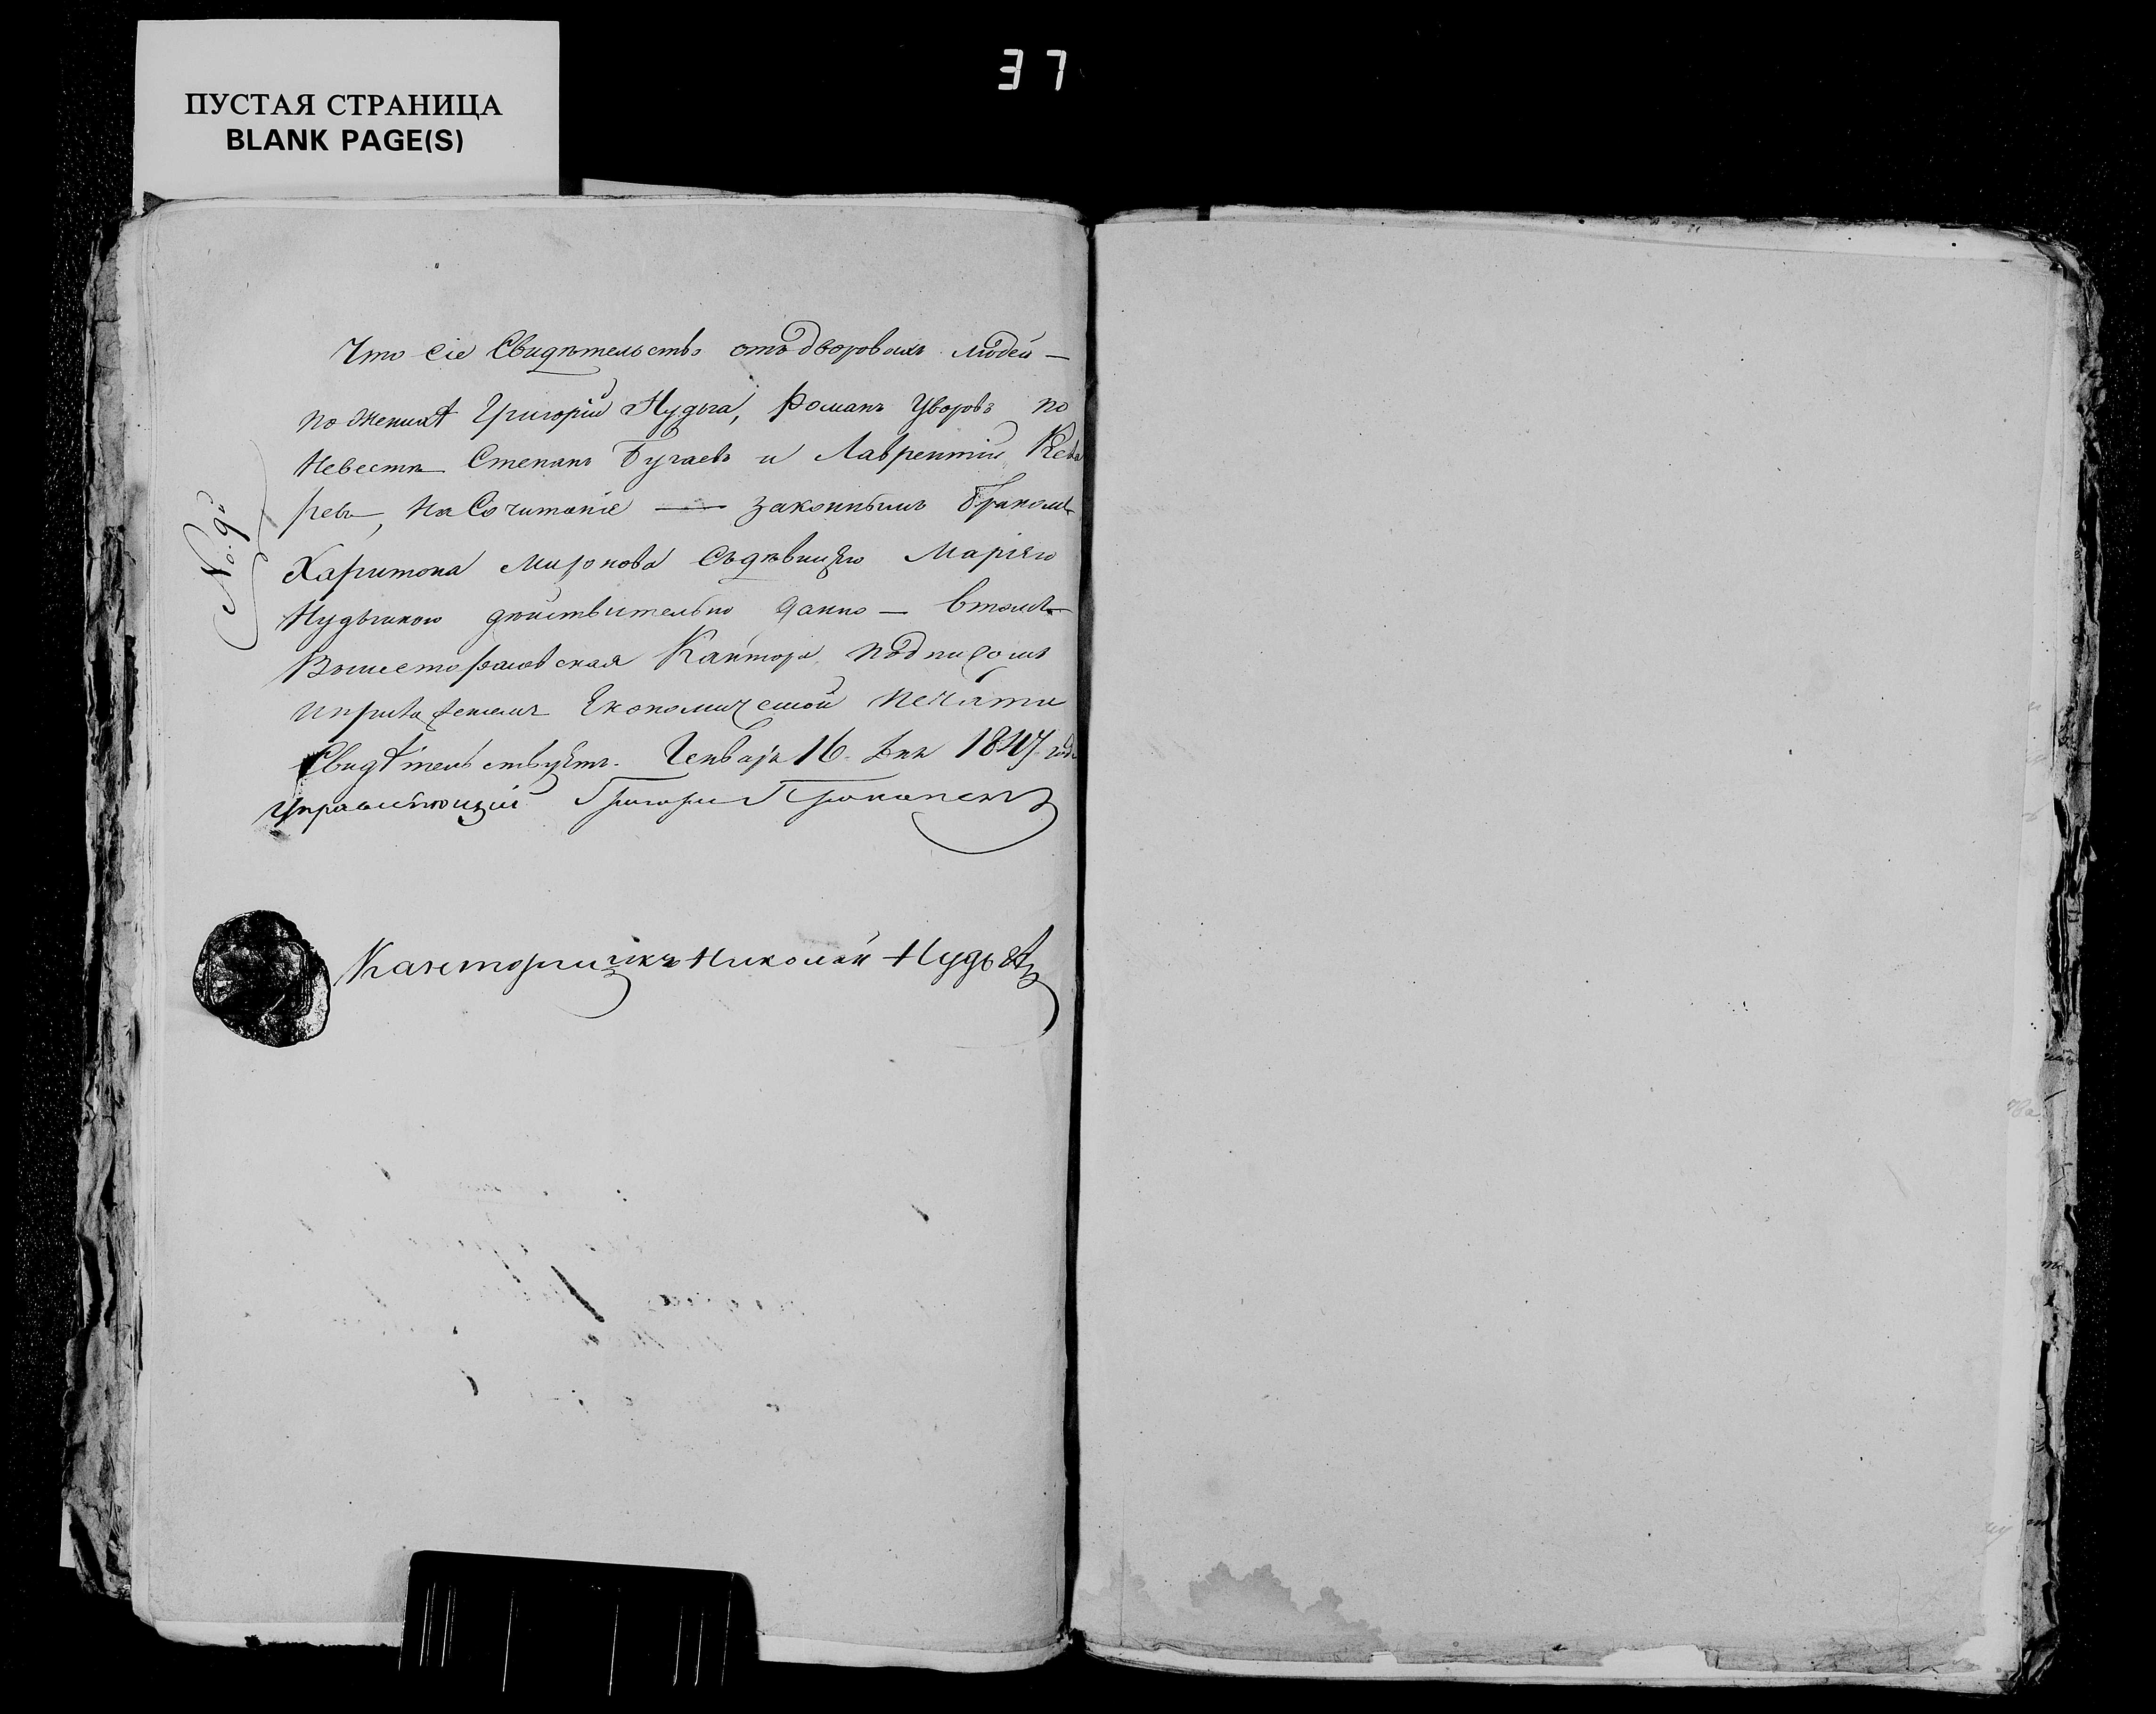 37
ПУСТАЯ СТРАНИЦА
BLANK PAGE(S)
Что сіе Свидѣтельство отъ дворовыхъ людей —
по женихѣ Григорій Нудьга, Романъ Уворовъ по
Невестѣ Степанъ Бугаевъ и Лаврентій
ревъ, на Сочитаніе — законнымъ бракомъ
Харитона Миронова Съдѣвицею Маріею
Нудьгикою дѣйствительно данно — втомъ
Кантора подписомъ
Економической печати
Свидѣтельствуетъ. Генваря 16. дня 1847 года
Управляющій Григорий
No. 9й
Канторщикъ Николай Нудьга